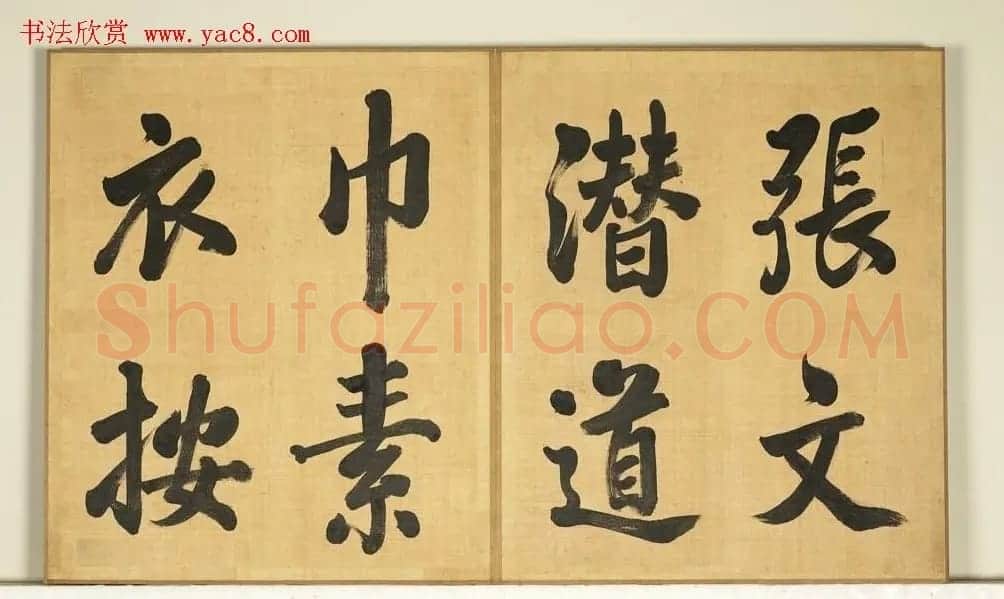 书法欣赏 www.yac8.com
張文
潜道
巾素
衣按
Shufaziliao.COM